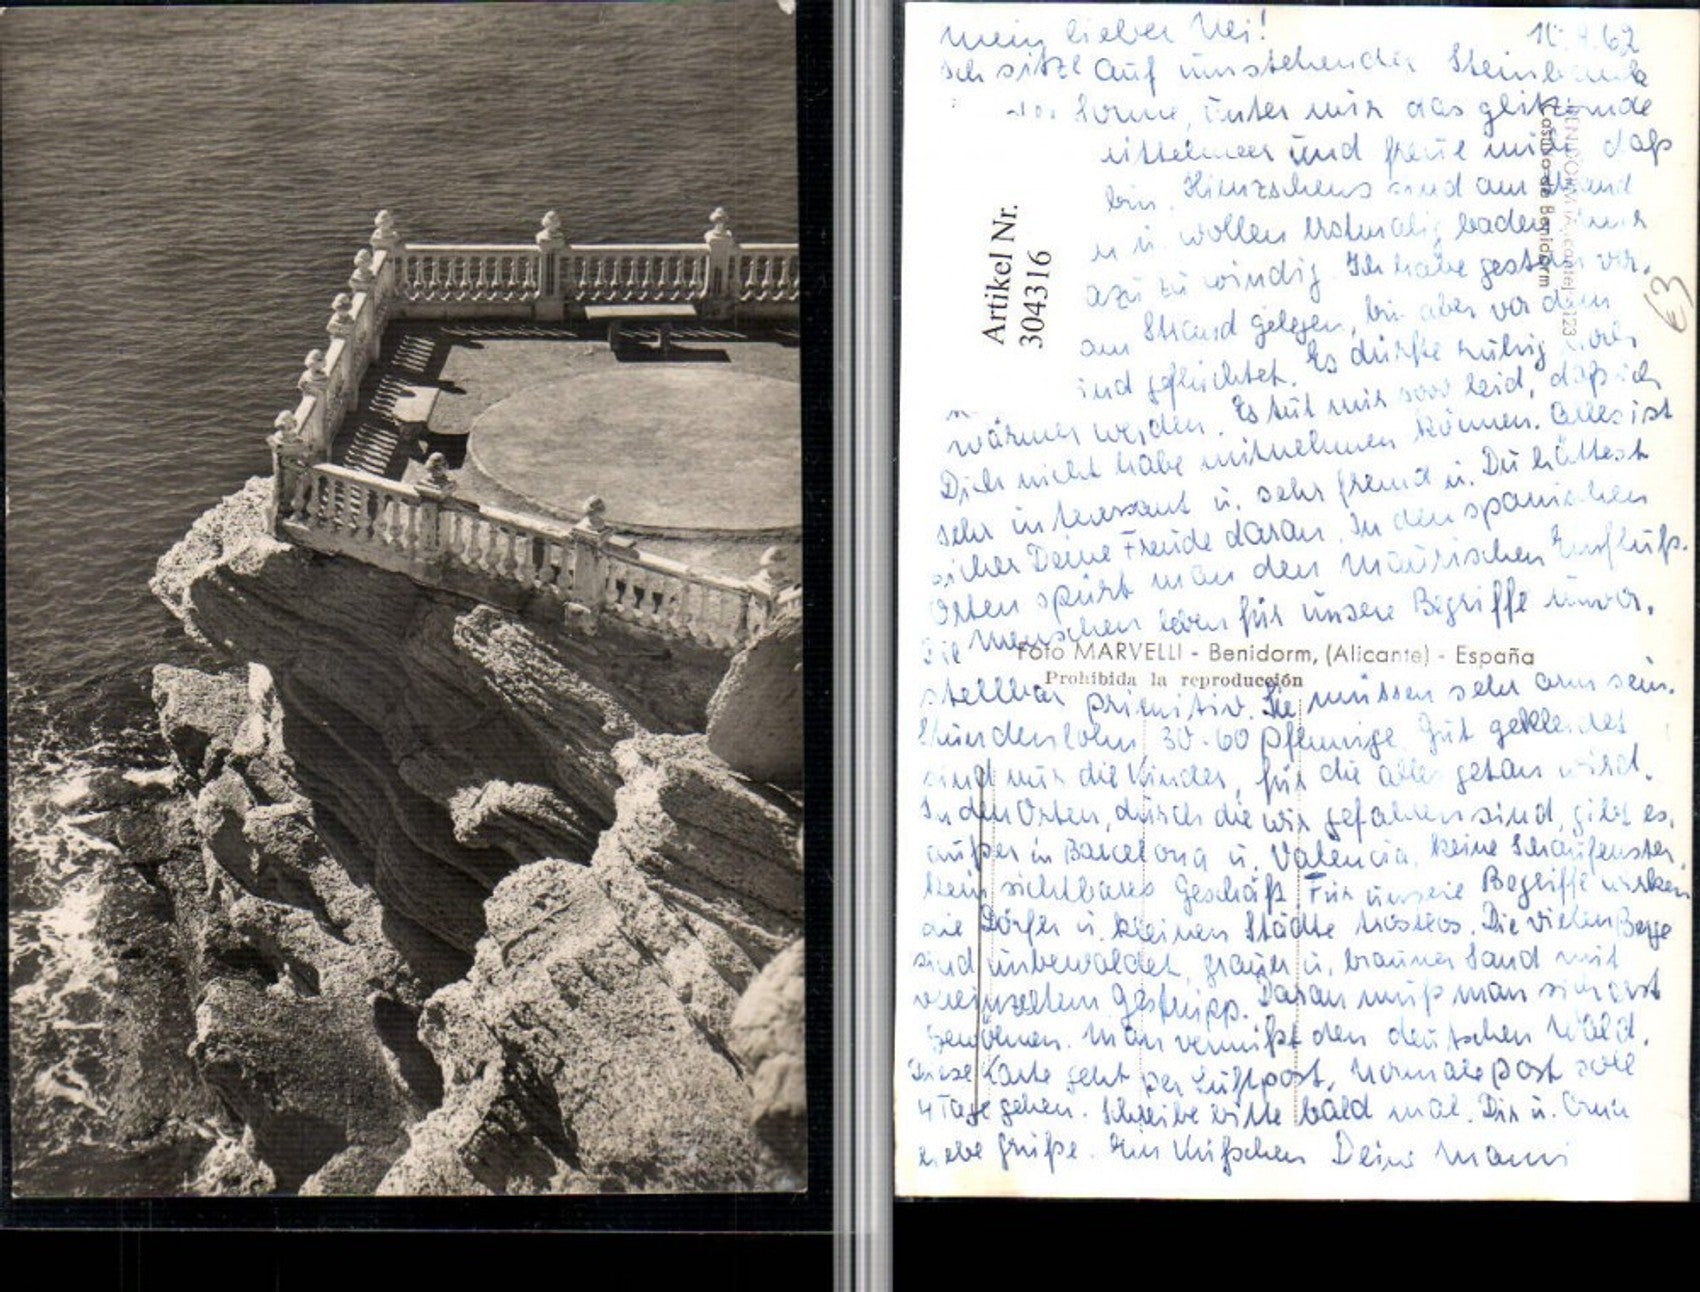 mein lieber Uei!
10.4.62
Ich sitze auf umstehender Steinbank
der Sonne, unter mir das glitzernde
ittelmeer und freue mich daß
bin. sind am Strand
n u. wollen erstmalig baden mir
azu zu windig. Ich habe gestern vor.
am Strand gelegen, bin aber vor dem
ind geflüchtet. Es dürfte ruhig noch
wärmer werden. Es tut mir sooo leid, daß ich
Dich nicht habe mitnehmen können. Alles ist
sehr interessant u. sehr fremd u. Du hättest
sicher Deine Freude daran. In den spanischen
Orten spürt man den maurischen Einfluß.
Die Menschen leben für unsere Begriffe unvor,
stellbar primitiv. Sie müssen sehr arm sein.
Stundenlohn 30-60 Pfennige. Gut gekleidet
sind nur die Kinder, für die alles getan wird.
In den Orten, durch die wir gefahren sind, gibt es,
außer in Barcelona u. Valencia, keine Schaufenster,
kein sichtbares Geschäft. Für unsere Begriffe wirken
die Dörfer u. kleinen Städte trostlos. Die vielen Berge
sind unbewaldet, grauer u. brauner Sand mit
vereinzeltem Gestrüpp. Daran muß man sich erst
gewöhnen. Man vermißt den deutschen Wald.
Diese Karte geht per Luftpost, normale post soll
4 Tage gehen. Schreibe bitte bald mal. Dir u. Omi
liebe Grüße. Ein Küßchen Deine Mami
BENIDORM
Castillo de Benidorm
123
Artikel Nr.
304316
€3
Foto MARVELLI - Benidorm, (Alicante) - España
Prohibida la reproducción